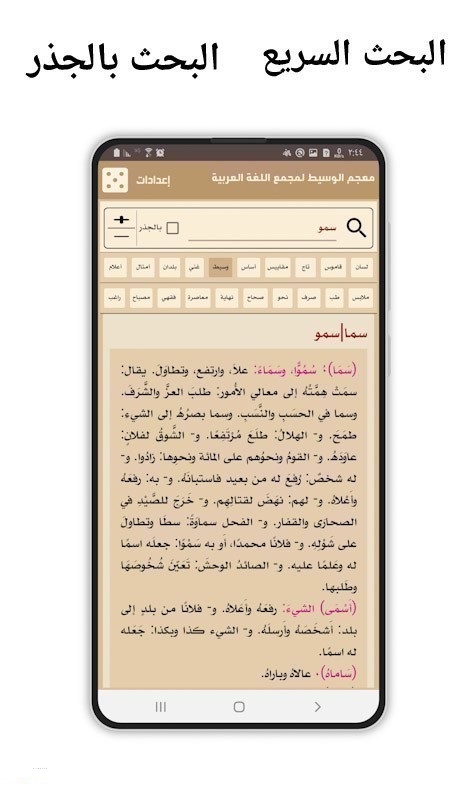 البحث السريع
البحث بالجذر
٢:٤٤
معجم الوسيط لمجمع اللغة العربية
إعدادات
سمو
بالجذر
لسان قاموس تاج مقاييس أساس وسيط غني بلدان امثال اعلام
ملابس طب صرف نحو صحاح نهاية معاصرة فقهي مصباح راغب
سما|سمو
(سَمَا) ُ سُمُوًّا، وسَمَاءً: علاَ، وارتفع، وتطاوَلَ. يقال:
سمَتْ هِمَّتُهُ إلى معالي الأُمور: طلبَ العزَّ والشَّرفَ.
وسما في الحسَبِ والنَّسَبِ. وسما بصرُهُ إلى الشيءِ:
طمَحَ. و- الهلالُ: طلَعَ مُرْتَفِعًا. و- الشَّوقُ لفلانٍ:
عاوَدَهُ. و- القومُ ونحوُهم على المائة ونحوِها: زادُوا. و-
له شخصٌ: رُفِعَ له من بعيد فاستبانَهُ. و- به: رفعَهُ
وأَعْلاهُ. و- لهم: نهَضَ لقتالِهم. و- خَرَجَ للصَّيْدِ في
الصحارَى والقفار. و- الفحل سماوَةً: سطَا وتطاولَ
على شَوْلِه. و- فلانًا محمدًا، أو به سَمْوًا: جعله اسمًا
له وعَلمًا عليه. و- الصائدُ الوحشَ: تَعَيَّنَ شُخُوصَهَا
وطلَبها.
(أَسْمَى) الشيءَ: رفعَهُ وأَعلاهُ. و- فلانًا من بلدٍ إلى
بلد: أَشخَصَهُ وأَرسلَهُ. و- الشيء كذا وبكذا: جَعله
له اسمًا.
(سَاماهُ)٠ عالاهُ وباراهُ.